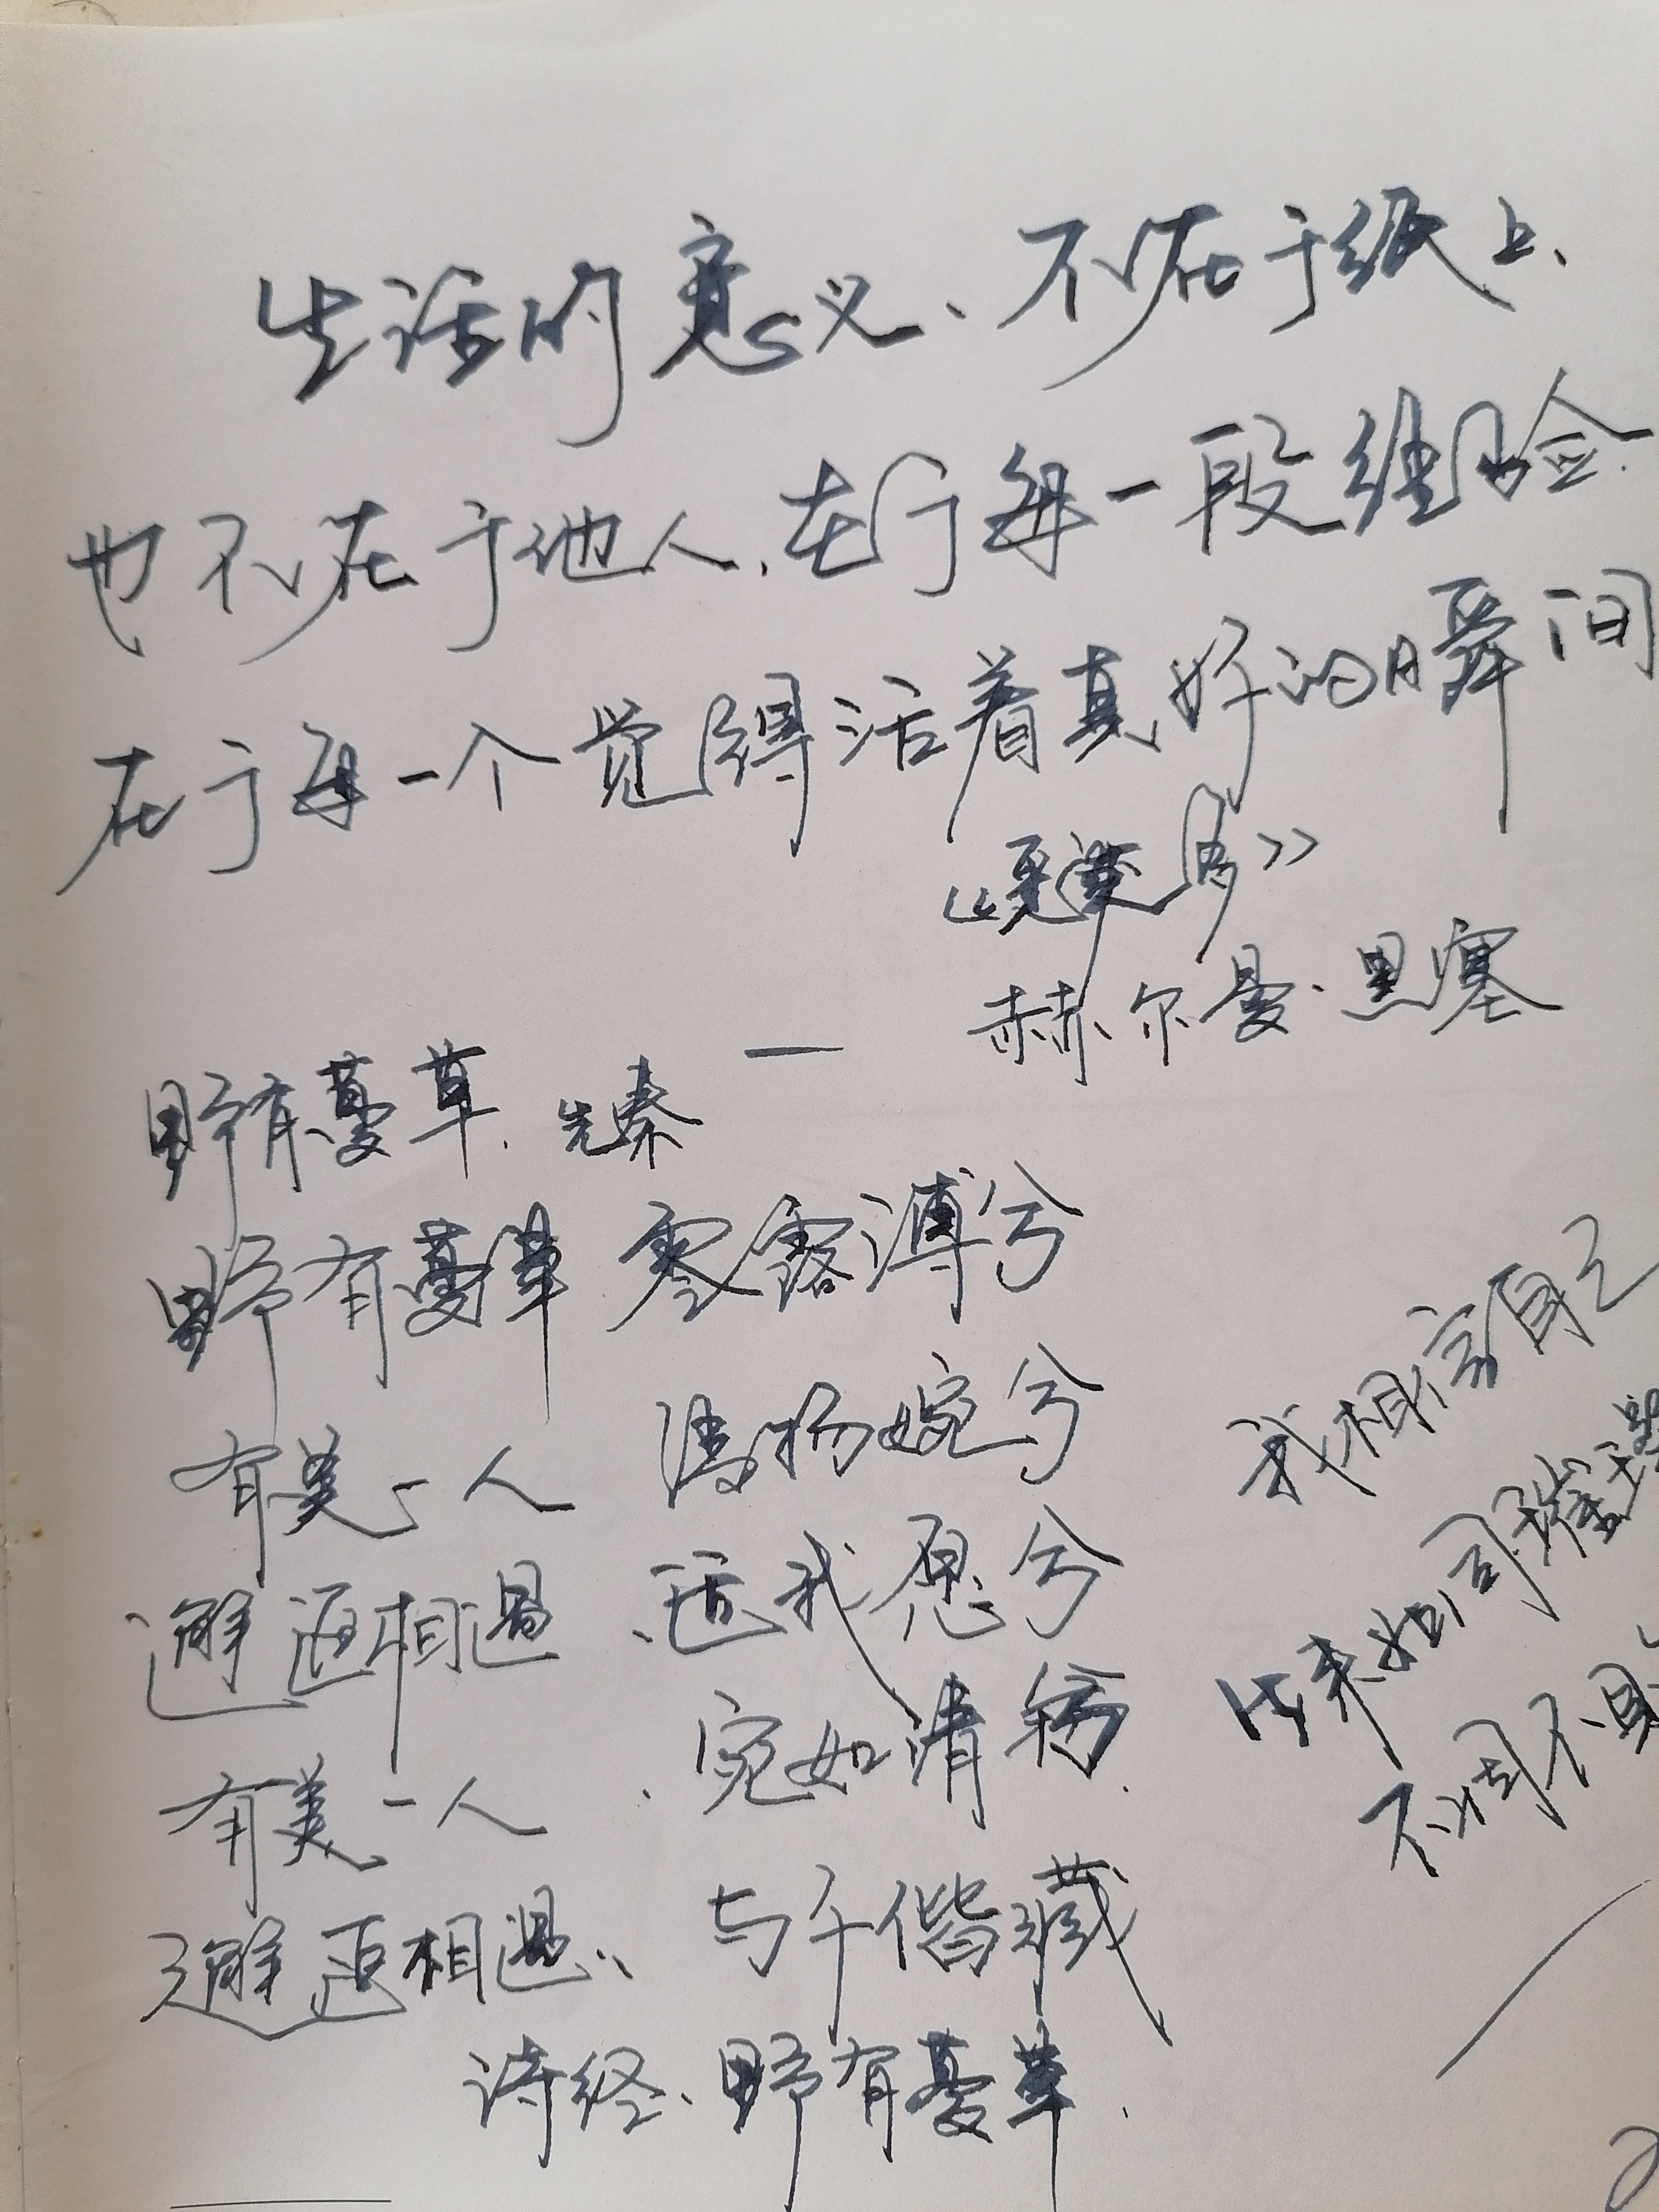 生活的意义、不在于纸上、
也不在于他人、在于每一段经验
在于每一个觉得活着真好的瞬间
赫尔曼·黑塞
野有蔓草、先秦
野有蔓草 零露漙兮
有美一人 清扬婉兮
邂逅相遇、适我愿兮
有美一人、宛如清扬、
邂逅相遇、与子偕臧
诗经、野有蔓草、
我相信自己
生来如同璀璨
不凋不